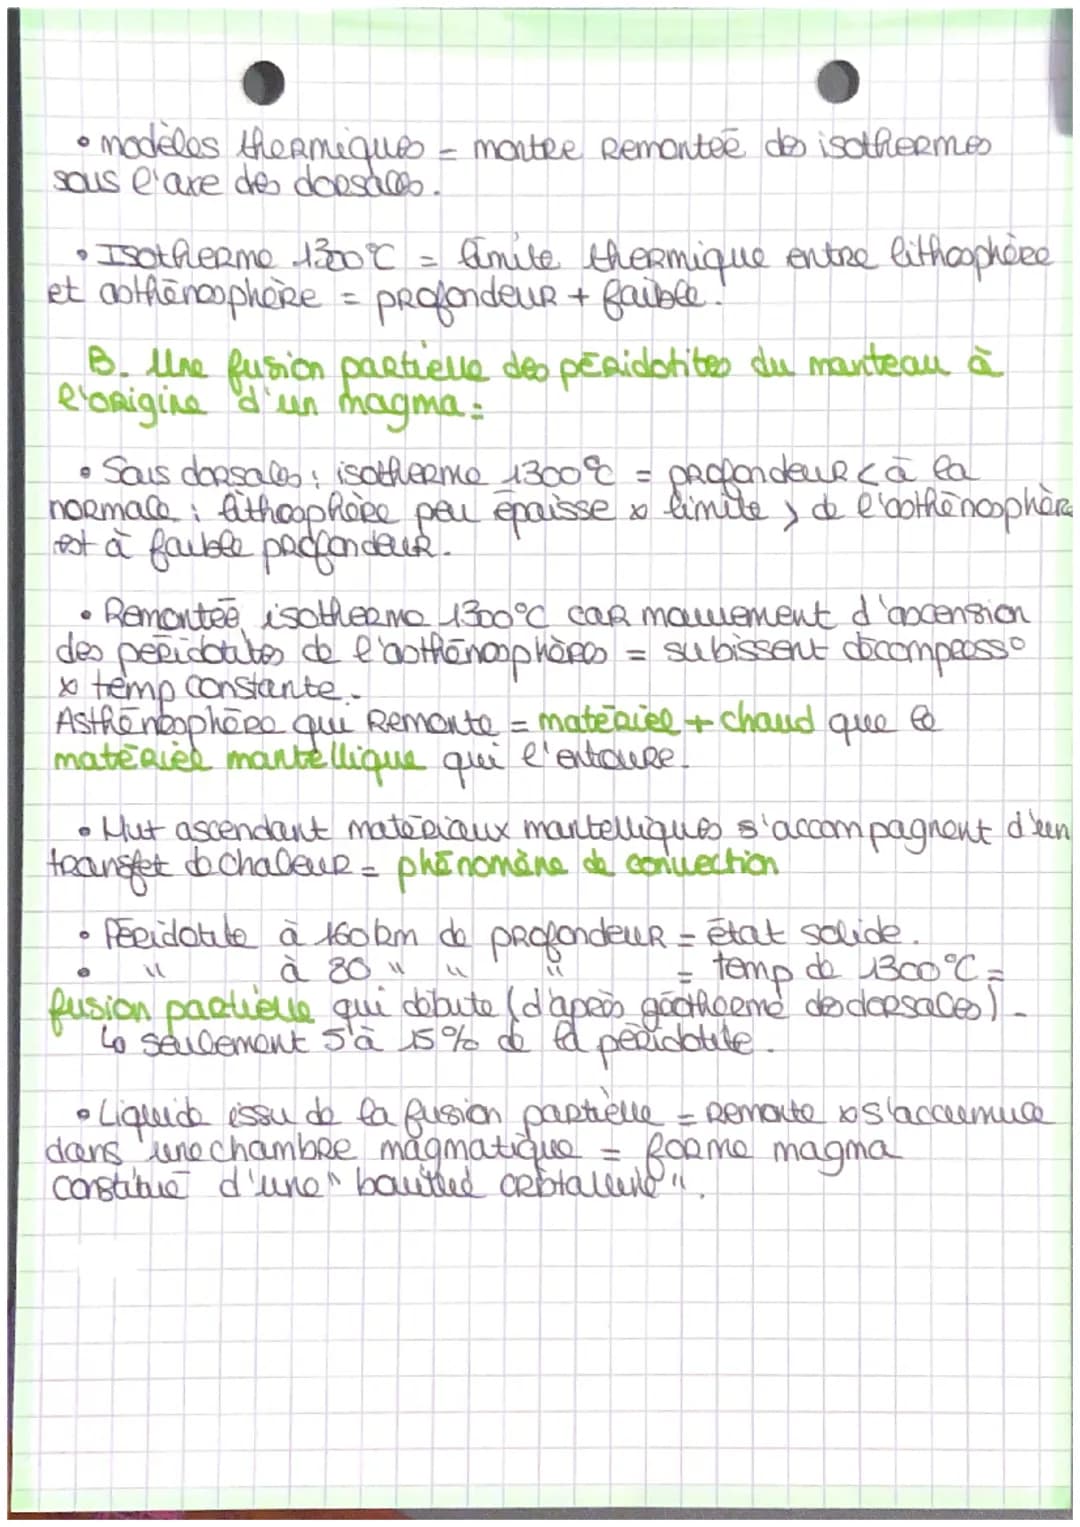 • modèles thermiques = montre remontée des isothermes
sous l'axe des dorsales.
• Isotherme 1300°C = limite thermique entre lithosphère
et asthénosphère = profondeur + faible.
B. Une fusion partielle des péridotites du manteau à
l'origine d'un magma :
• Sous dorsales : isotherme 1300°C = profondeur < à la
normale ; lithosphère peu épaisse & limite > de l'asthénosphère
est à faible profondeur.
• Remontée isotherme 1300°C car mouvement d'ascension
des péridotites de l'asthénosphères = subissent décompress°
& temp constante.
Asthénosphère qui remonte = matériel + chaud que le
matériel mantellique qui l'entoure.
• Mvt ascendant matériaux mantelliques s'accompagnent d'un
transfet de chaleur = phénomène de convection
• Péridotite à 160 km de profondeur = état solide.
• " à 80 " " " = temp de 1300°C =
fusion partielle qui débute (d'après géotherme des dorsales).
↳ seulement 5 à 15% de la péridotite.
• Liquide issu de la fusion partielle = remonte & s'accumule
dans une chambre magmatique = forme magma
constitué d'une "bouillie cristalline".